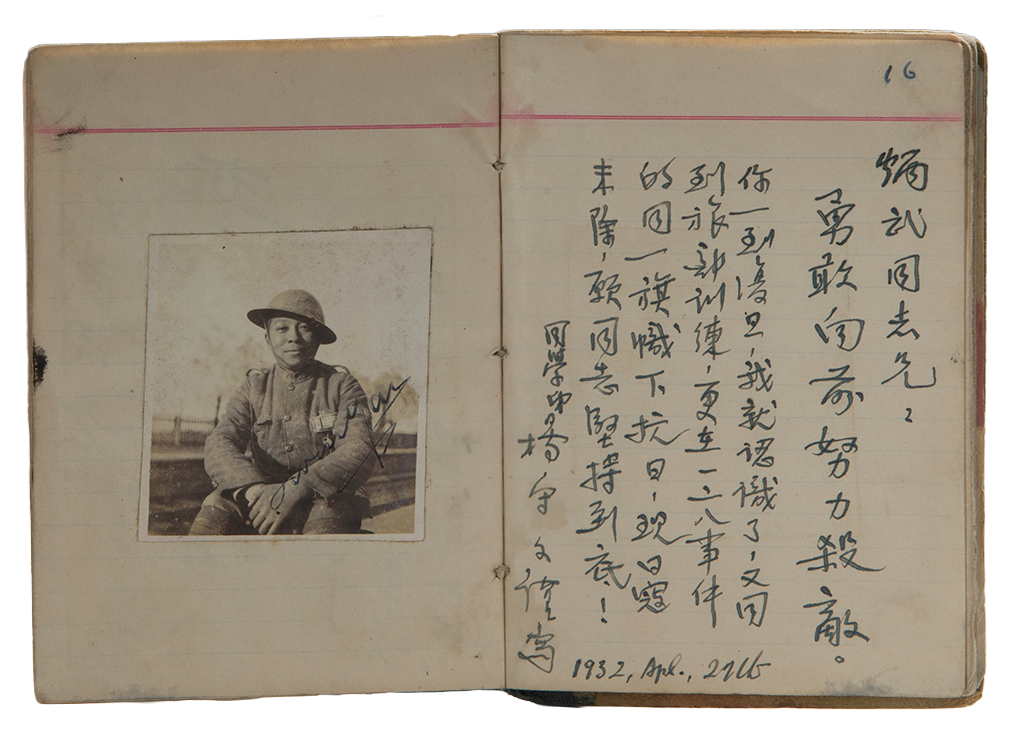 16
炳武同志兄：
勇敢向前努力殺敵。
你一到復旦，我就認識了，又同
到旅部訓練，更在一二八事件
的同一旗幟下抗日，現日寇
未除，願同志堅操到底！
同學弟 楊守文謹寫
1932, Apl., 27th